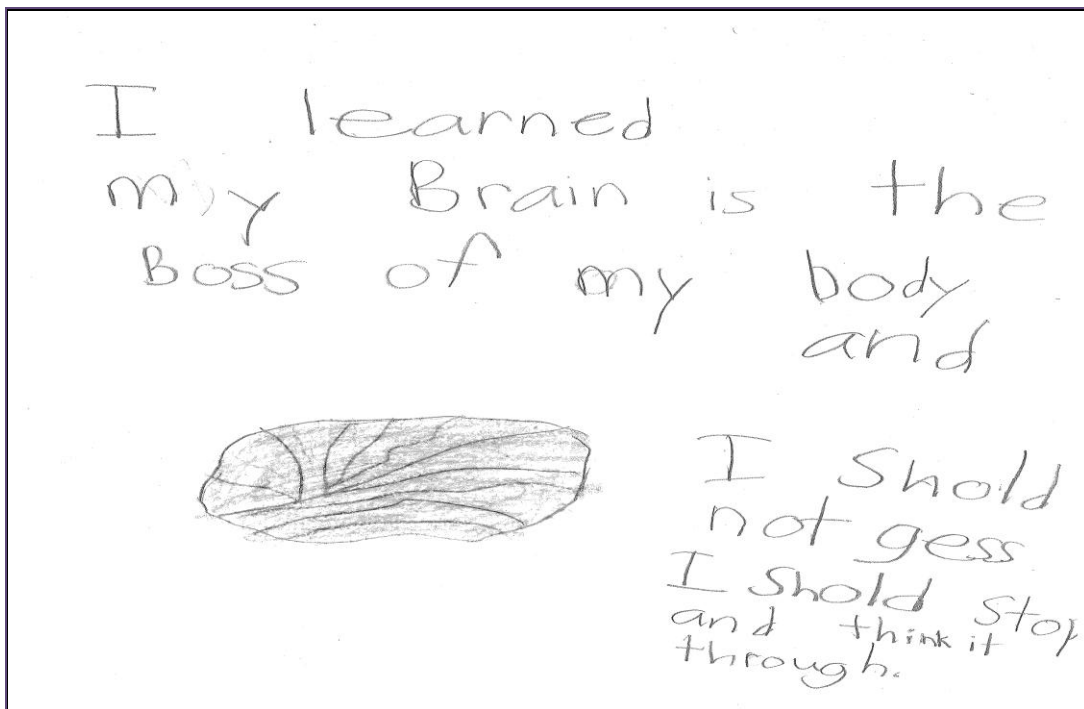 I learned
my Brain is the
Boss of my body
and
I Shold
not gess
I shold stop
and think it
through.